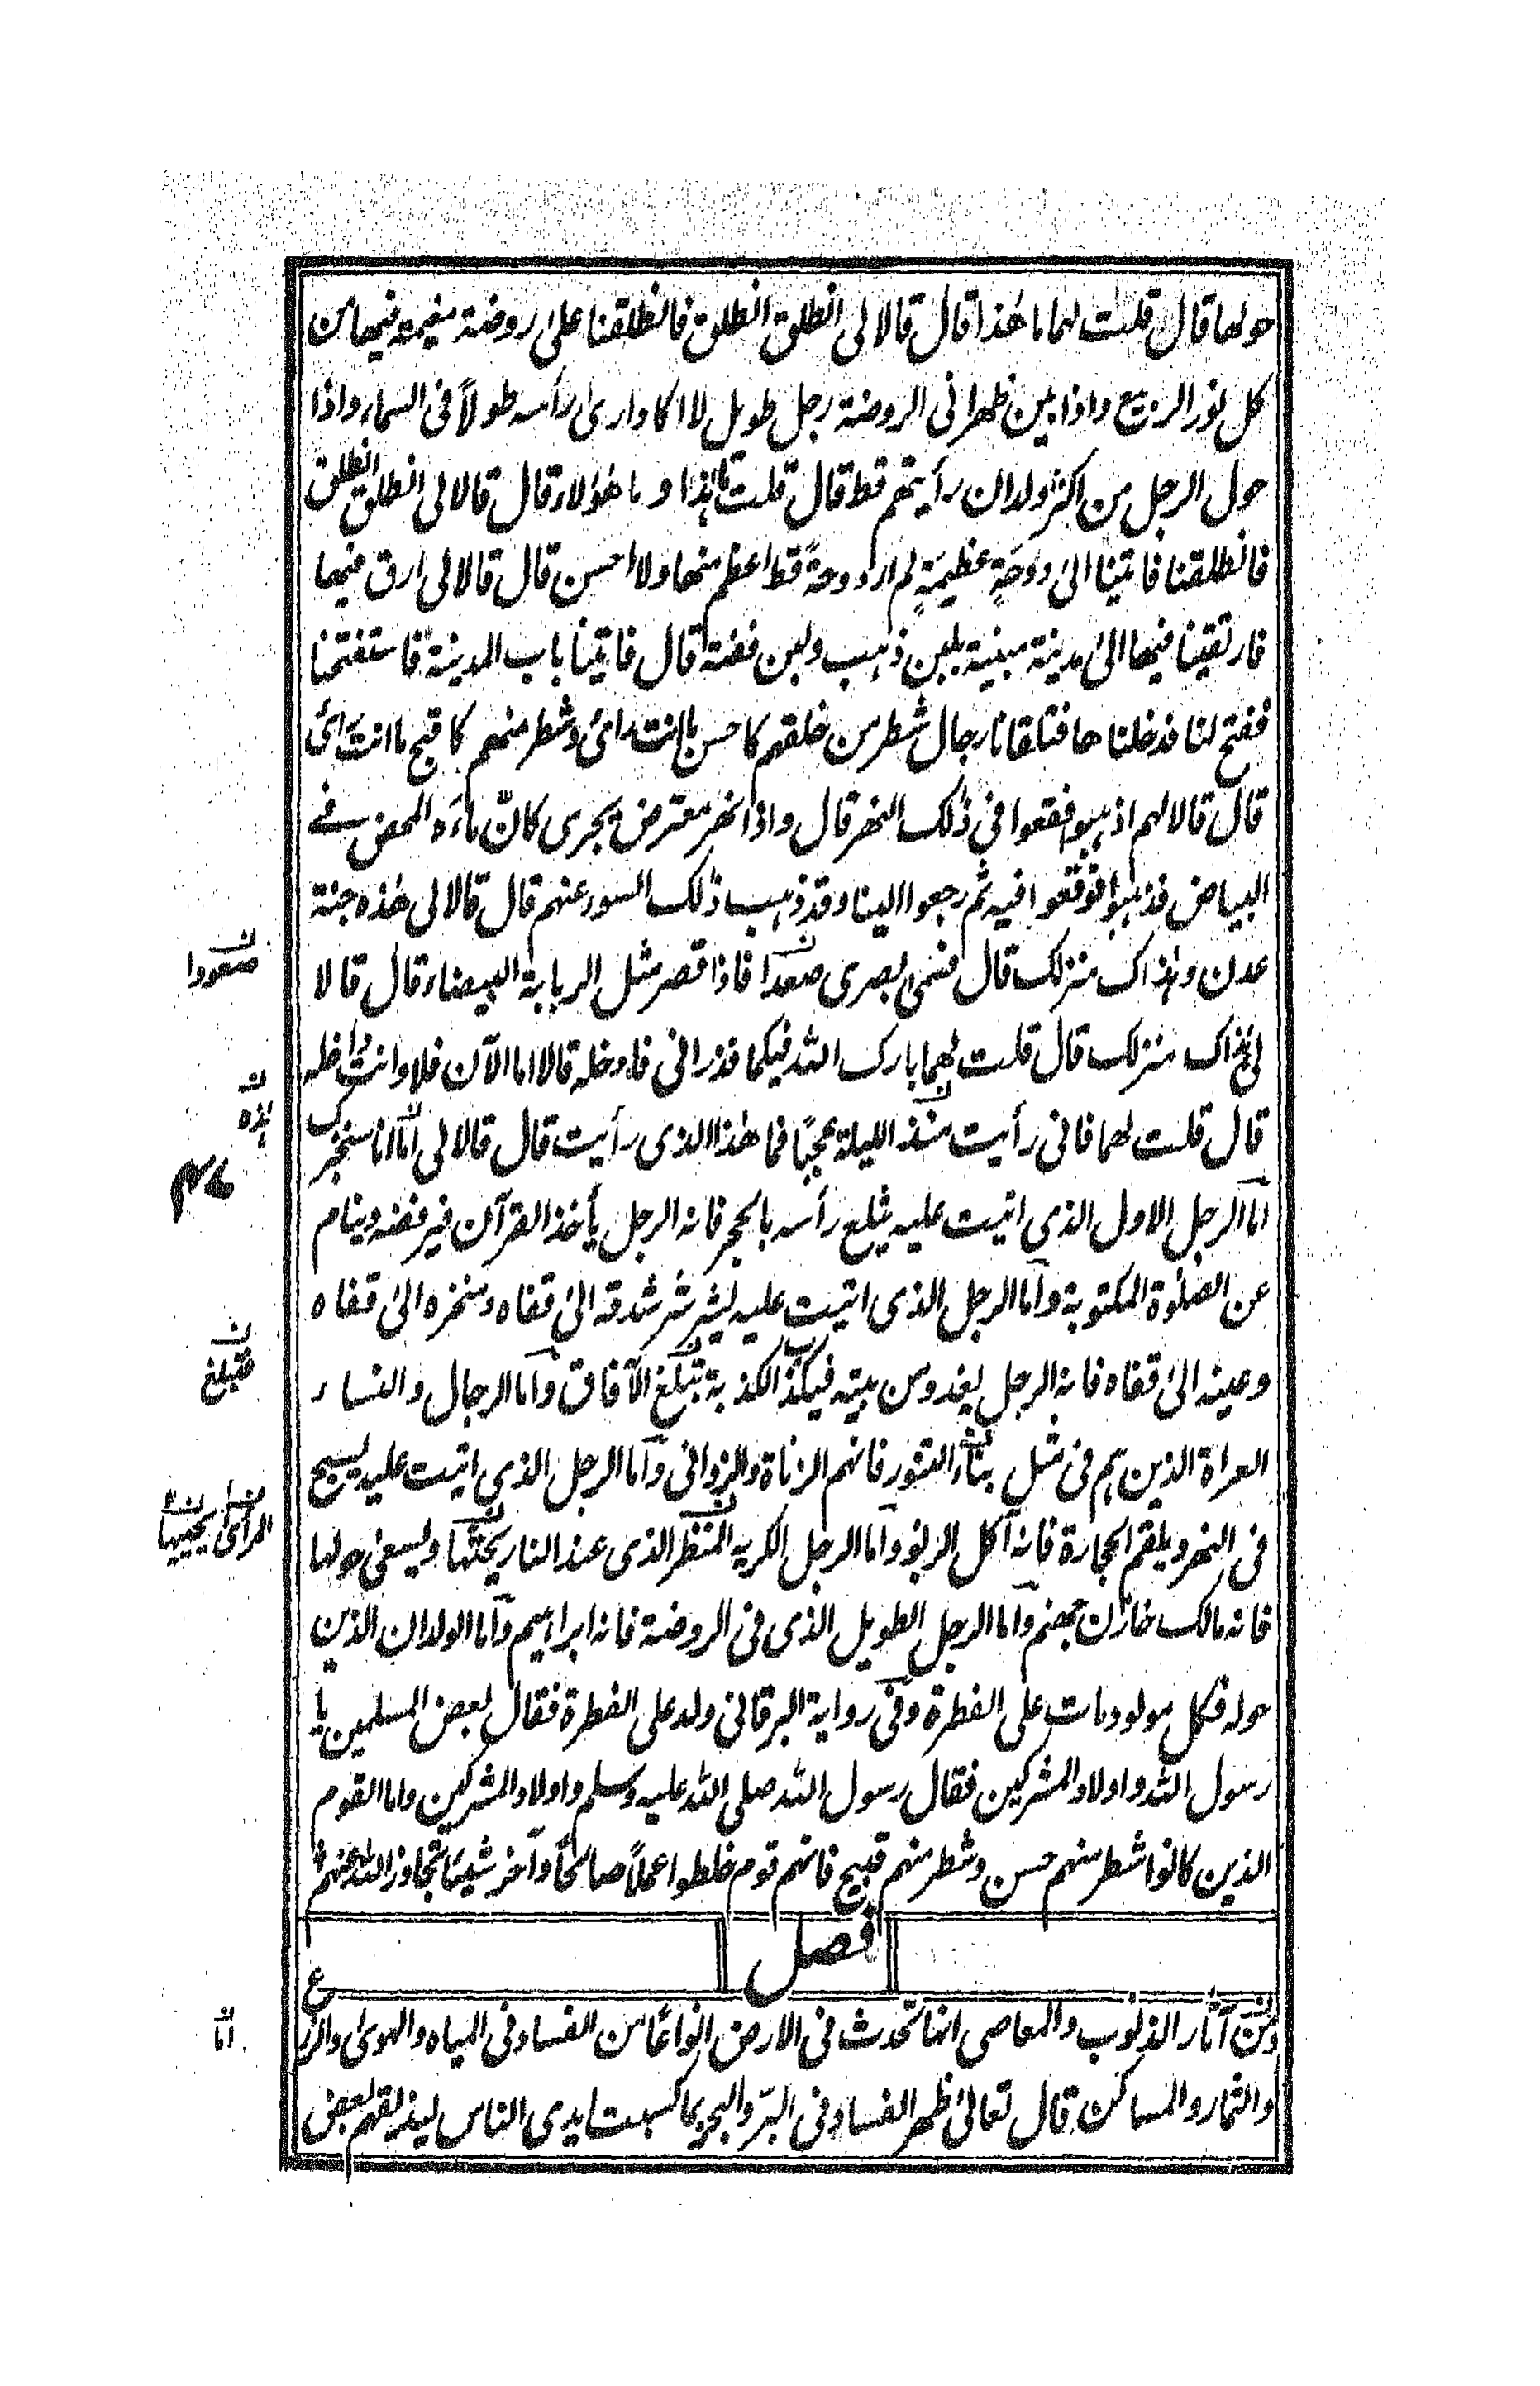 حولها قال قلت لهما ما هٰذا قال قالا لى انطلق انطلق فانطلقنا علىٰ روضة مغيمة فيها من
كل نور الربيع واذا بين ظهرانى الروضة رجل طويل لا اكاد ارىٰ رأسه طولاً فى السماء واذا
حول الرجل من اكثر ولدان رأيتهم قط قال قلت ما هٰذا و ما هٰؤلاء قال قالا لى انطلق انطلق
فانطلقنا فاتينا الىٰ دوحَةٍ عظيمَةٍ لم ار دوحةً قط اعظم منها ولا احسن قال قالا لى ارق فيها
فارتقينا فيها الىٰ مدينة مبنية بلبن ذهب ولبن فضة قال فاتينا باب المدينة فاستفتحنا
ففتح لنا فدخلناها فتلقانا رجال شطر من خلقهم كاحسن ما انت رائى وشطر منهم كاقبح ما انت رائى
قال قالا لهم اذهبوا فقعوا فى ذٰلك النهر قال واذا نهر معترض يجرى كانّ ماءه المحض فے
البياض فذهبوا فوقعوا فيه ثم رجعوا الينا وقد ذهب ذٰلك السوء عنهم قال قالا لى هٰذه جنة
عدن وهٰذاك منزلك قال فسمىٰ بصرى صعدا فاذا قصر مثل الربابة البيضاء قال قالا
لى هٰذاك منزلك قال قلت لهما بارك الله فيكما فذرانى فادخله قالا اما الآن فلا وانت داخله
قال قلت لهما فانى رأيت منذ الليلة عجبًا فما هٰذا الذى رأيت قال قالا لى اما انا سنخبرك
اما الرجل الاول الذى اتيت عليه يثلغ رأسه بالحجر فانه الرجل يأخذ القرآن فيرفضه وينام
عن الصلوٰة المكتوبة واما الرجل الذى اتيت عليه يشرشر شدقه الىٰ قفاه ومنخره الىٰ قفاه
وعينه الىٰ قفاه فانه الرجل يغدو من بيته فيكذب الكذبة تبلغ الآفاق واما الرجال والنساء
العراة الذين هم فى مثل بناء التنور فانهم الزناة والزوانى واما الرجل الذى اتيت عليه يسبح
فى النهر ويلقم الحجارة فانه آكل الربو واما الرجل الكريه المنظر الذى عند النار يحثها ويسعىٰ حولها
فانه مالك خازن جهنم واما الرجل الطويل الذى فى الروضة فانه ابراهيم واما الولدان الذين
حوله فكل مولود مات على الفطرة وفى رواية البرقانى ولد على الفطرة فقال بعض المسلمين يا
رسول الله واولاد المشركين فقال رسول الله صلى الله عليه وسلم واولاد المشركين واما القوم
الذين كانوا شطر منهم حسن وشطر منهم قبيح فانهم قوم خلطوا عملاً صالحًا وآخر سيئًا تجاوز الله عنهم
فصل
ومن آثار الذنوب والمعاصى انها تحدث فى الارض انواعًا من الفساد فى المياه والهوىٰ والزرع
والثمار والمساكن قال تعالىٰ ظهر الفساد فى البرّ والبحر بما كسبت ايدى الناس ليذيقهم بعض
صعودا
هٰذه
فتبلغ
المرآىٰ يحييها
اما